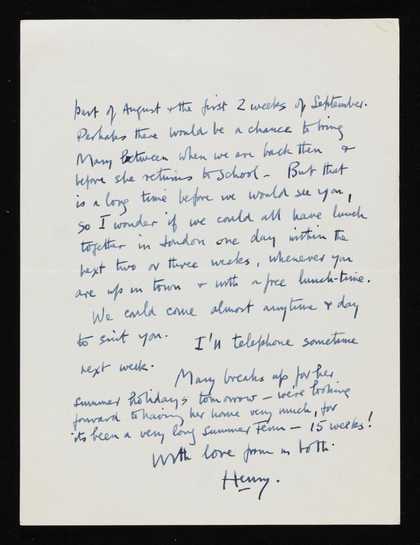 part of August & the first 2 weeks of September.
Perhaps there would be a chance to bring
Mary between when we are back then &
before she returns to school – But that
is a long time before we would see you,
so I wonder if we could all have lunch
together in London one day within the
next two or three weeks, whenever you
are up in town & with a free lunch-time.
We could come almost anytime & day
to suit you. I'll telephone sometime
next week.
Mary breaks up for her
summer holidays tomorrow – we're looking
forward to having her home very much, for
its been a very long summer term – 15 weeks!
With love from us both.
Henry.